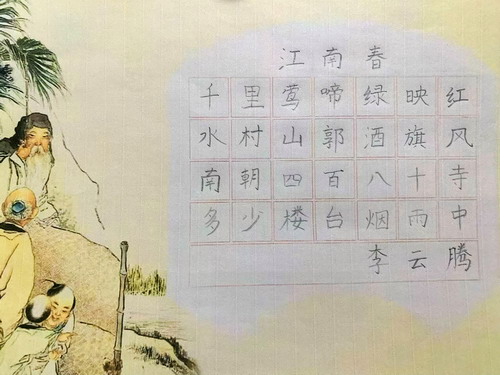 江南春
千里莺啼绿映红
水村山郭酒旗风
南朝四百八十寺
多少楼台烟雨中
李云腾